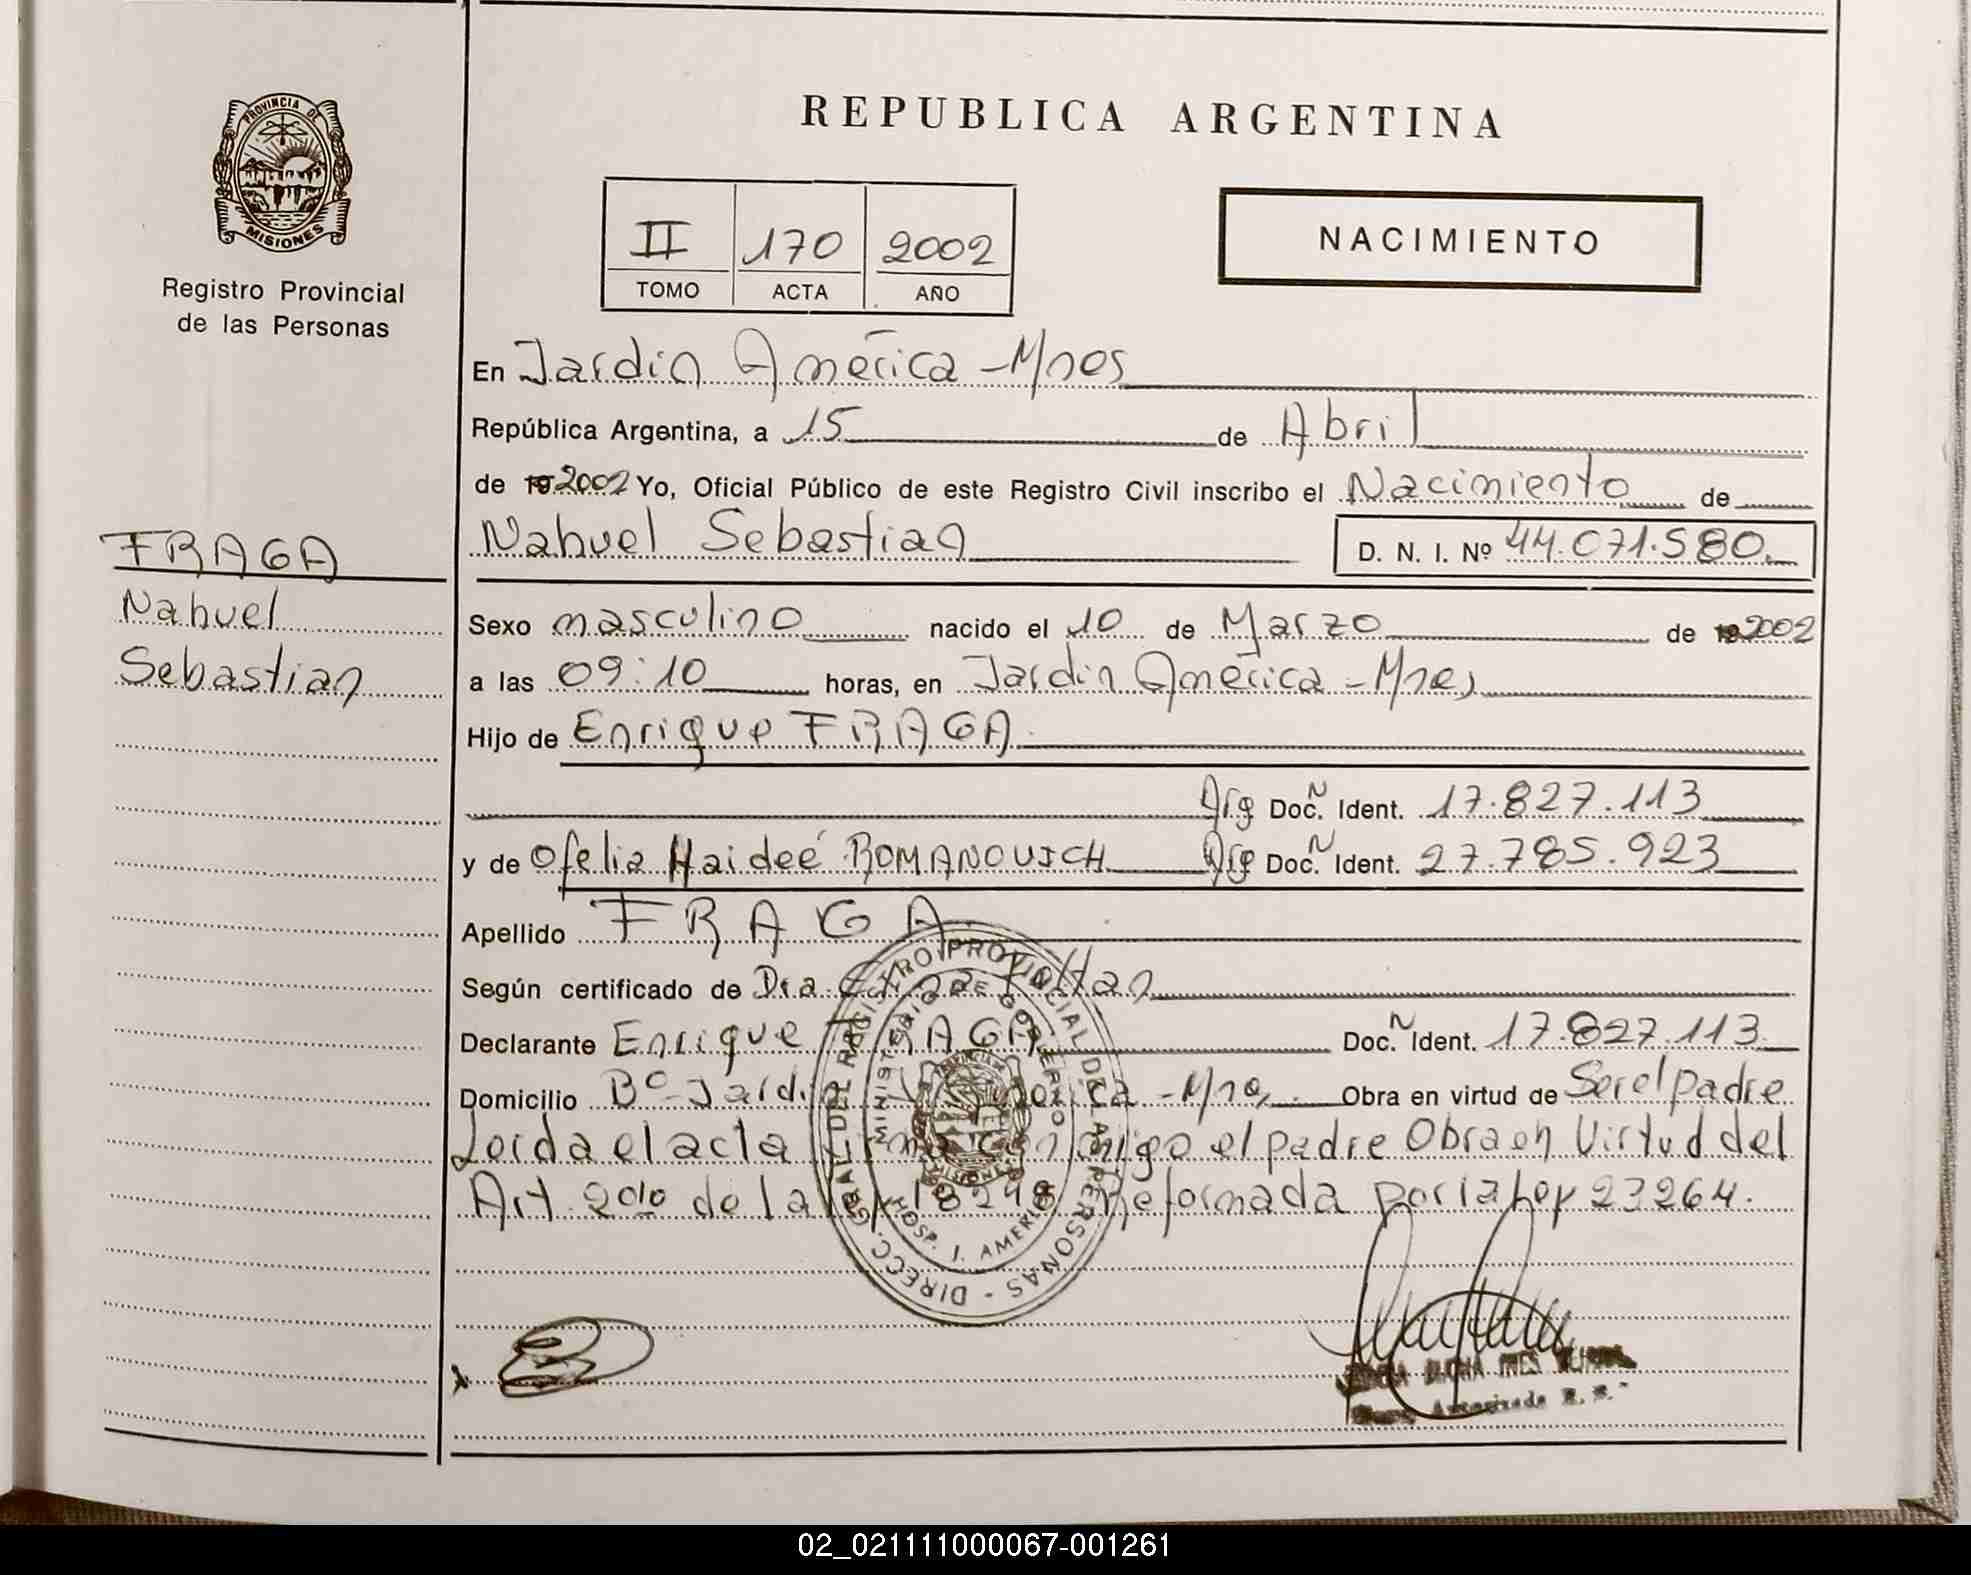 PROVINCIA DE
MISIONES
Registro Provincial
de las Personas
REPUBLICA ARGENTINA
II 170 2002
TOMO ACTA AÑO
NACIMIENTO
En Jardin América - Mnes
República Argentina, a 15 de Abril
de 19 2002 Yo, Oficial Público de este Registro Civil inscribo el Nacimiento de
Nahuel Sebastian D. N. I. Nº 44.071.580.
FRAGA
Nahuel
Sebastian
Sexo masculino nacido el 10 de Marzo de 19 2002
a las 09:10 horas, en Jardin América - Mnes
Hijo de Enrique FRAGA
Arg Doc. N Ident. 17.827.113
y de Ofelia Haideé ROMANOVICH Arg Doc. N Ident. 27.785.923
Apellido FRAGA
Según certificado de Dra.
Declarante Enrique FRAGA Doc. N Ident. 17.827.113
Domicilio Bº Jardin América - Mnes Obra en virtud de Ser el padre
Leida el acta firma conmigo el padre Obra en Virtud del
Art 2do de la ley 18248 Reformada por la ley 23264.
DIRECC. GRAL. DEL REGISTRO PROVINCIAL DE LAS PERSONAS -
MINISTERIO DE GOBIERNO
HOSP. J. AMERICA
x
02_021111000067-001261